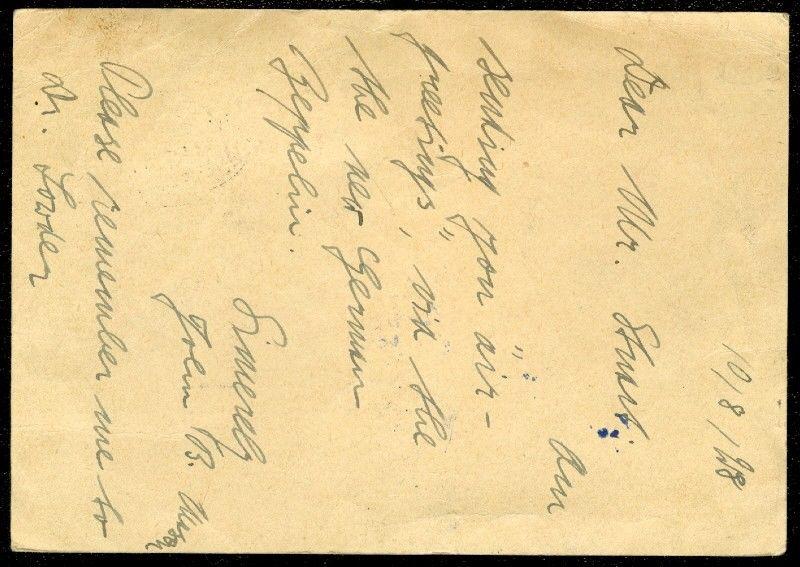 10/8/28
Dear Mr. Stuart:
Am
sending you "air-
greetings", via the
the new German
Zeppelin.
Sincerely
John B.
Please remember me to
Dr. Lowder